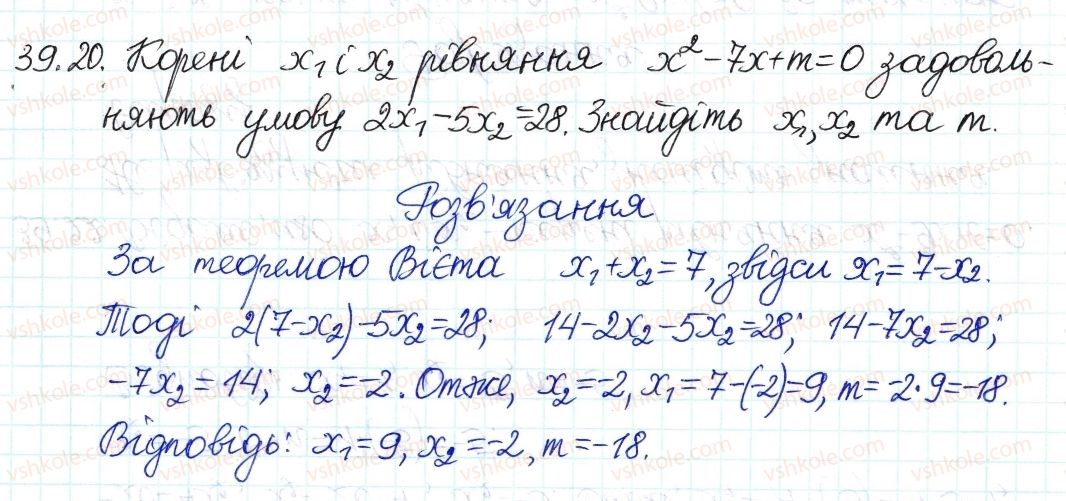 39.20. Корені x₁ і x₂ рівняння x² - 7x + m = 0 задоволь-
няють умову 2x₁ - 5x₂ = 28. Знайдіть x₁, x₂ та m.
Розв'язання
За теоремою Вієта x₁ + x₂ = 7, звідси x₁ = 7 - x₂.
Тоді 2(7 - x₂) - 5x₂ = 28; 14 - 2x₂ - 5x₂ = 28; 14 - 7x₂ = 28;
-7x₂ = 14; x₂ = -2. Отже, x₂ = -2, x₁ = 7 - (-2) = 9, m = -2 · 9 = -18.
Відповідь: x₁ = 9, x₂ = -2, m = -18.
vshkole.com